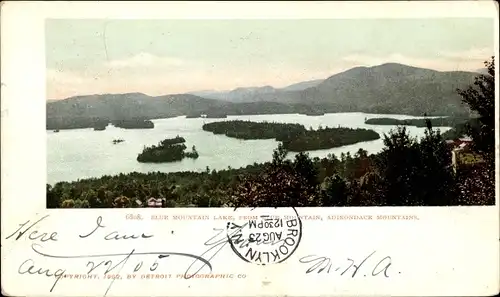 6808. BLUE MOUNTAIN LAKE, FROM BLUE MOUNTAIN, ADIRONDACK MOUNTAINS.
Here I am!
Aug 22, 05
M. W. A.
BROOKLYN N.Y.
AUG 23
12 30 PM
COPYRIGHT, 1902, BY DETROIT PHOTOGRAPHIC CO.